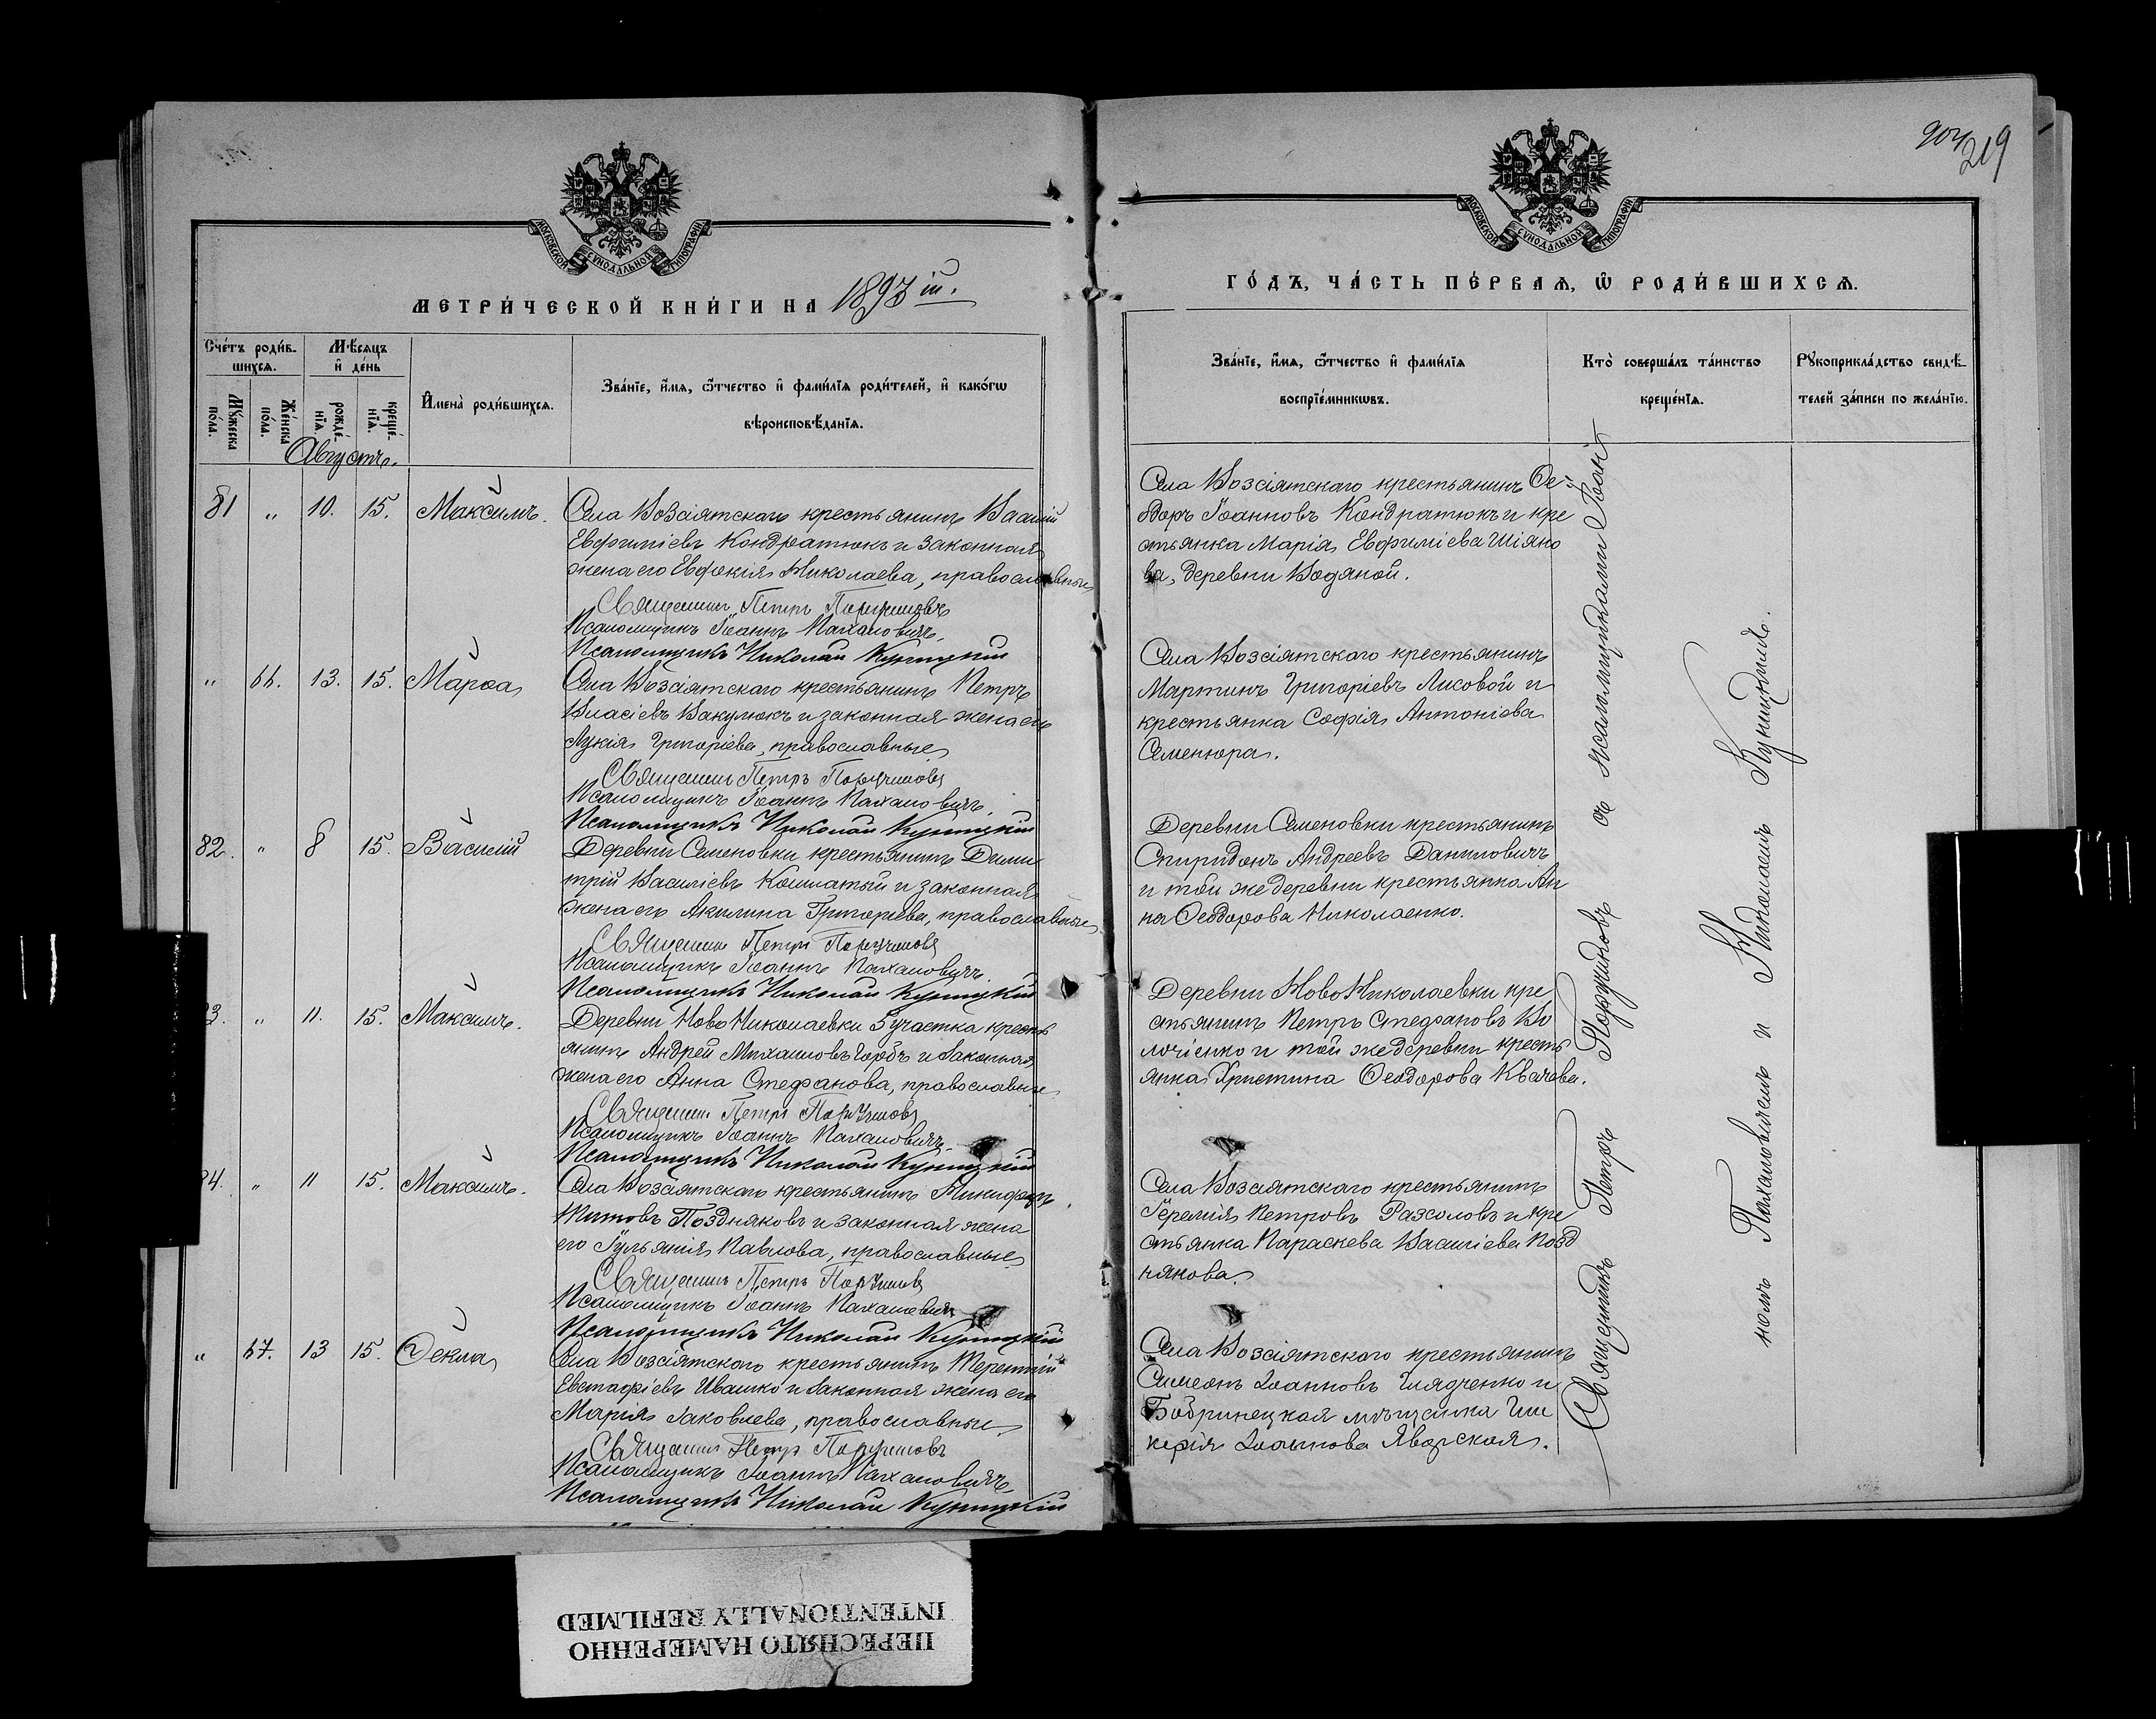 МОСКОВСКОЙ СѴНОДАЛЬНОЙ ТИПОГРАФІИ
МЕТРИ́ЧЕСКОЙ КНИ́ГИ НА 1893 ій.
Сче́тъ роди́в-
шихсѧ.
Мꙋ́жеска по́ла.
Же́нска по́ла.
Мѣ́сѧцъ
и҆ де́нь
рожде́-нїѧ.
креще́-нїѧ.
И҆мена̀ роди́вшихсѧ.
Зва́нїе, и҆́мѧ, ѻ҆́тчество и҆ фами́лїѧ роди́телей, и҆ како́гѡ
вѣроисповѣ́данїѧ.
Августъ.
81 " 10. 15. Максимъ.
Села Возсіятскаго крестьянинъ Василій
Евфиміевъ Кондратюкъ и законная
жена его Евфокія Николаева, православные
Священникъ Петръ Поручиновъ
Псаломщикъ Іоаннъ Пахаловичъ.
Псаломщикъ Николай Куницкій
" 66. 13. 15. Марѳа
Села Возсіятскаго крестьянинъ Петръ
Власіевъ Вакулюкъ и законная жена его
Лукія Григоріева, православные
Священникъ Петръ Поручиновъ
Псаломщикъ Іоаннъ Пахаловичъ.
Псаломщикъ Николай Куницкій
82. " 8 15. Василій
Деревни Семеновки крестьянинъ Дими
трій Василіевъ Кошлатый и законная
жена его Акилина Григоріева, православные
Священникъ Петръ Поручиновъ
Псаломщикъ Іоаннъ Пахаловичъ.
Псаломщикъ Николай Куницкій
3. " 11. 15. Максимъ.
Деревни Ново Николаевки 5 участка кресть
янинъ Андрей Михаиловъ Горбъ и законная
жена его Анна Стефанова, православные
Священникъ Петръ Поручиновъ
Псаломщикъ Іоаннъ Пахаловичъ.
Псаломщикъ Николай Куницкій
84. " 11 15. Максимъ.
Села Возсіятскаго крестьянинъ Никифоръ
Титовъ Поздняковъ и законная жена
его Іульянія Павлова, православные
Священникъ Петръ Поручиновъ
Псаломщикъ Іоаннъ Пахаловичъ
Псаломщикъ Николай Куницкій
" 67. 13 15. Ѳекла
Села Возсіятскаго крестьянинъ Терентій
Евстафіевъ Ивашко и законная жена его
Марія Іаковлева, православные
Священникъ Петръ Поручиновъ
Псаломщикъ Іоаннъ Пахаловичъ.
Псаломщикъ Николай Куницкій
219
МОСКОВСКОЙ СѴНОДАЛЬНОЙ ТИПОГРАФІИ
ГО́ДЪ, ЧА́СТЬ ПЕ́РВАѦ, Ѡ҆ РОДИ́ВШИХСѦ.
Зва́нїе, и҆́мѧ, ѻ҆́тчество и҆ фами́лїѧ
воспрїе́мникѡвъ.
Кто̀ соверша́лъ та́инство
креще́нїѧ.
Рꙋкоприкла́дство свидѣ́-
телей за́писи по жела́нїю.
Села Возсіятскаго крестьянинъ Ѳе
одоръ Іоанновъ Кондратюкъ и кре
стьянка Марія Евфиміева Шіяно
ва, деревни Водяной.
Села Возсіятскаго крестьянинъ
Мартинъ Григоріевъ Лисовой и
крестьянка Софія Антоніева
Семенюра.
Деревни Семеновки крестьянинъ
Спиридонъ Андреевъ Даниловичъ
и той же деревни крестьянка Ан
на Ѳеодорова Николаенко.
Деревни Ново Николаевки кре
стьянинъ Петръ Стефановъ Во
лочіенко и той же деревни кресть
янка Христина Ѳеодорова Квачева.
Села Возсіятскаго крестьянинъ
Іеремія Петровъ Разсоловъ и кре
стьянка Параскева Василіева Позд
някова.
Села Возсіятскаго крестьянинъ
Симеонъ Іоанновъ Глядченко и
Бобринецкая мѣщанка Гли
керія Іоаннова Яворская.
Священникъ Петръ Поручиновъ съ псаломщиками Іоан
номъ Пахаловичемъ и Николаемъ Куницкимъ.
ПЕРЕСНЯТО НАМЕРЕННО
INTENTIONALLY REFILMED